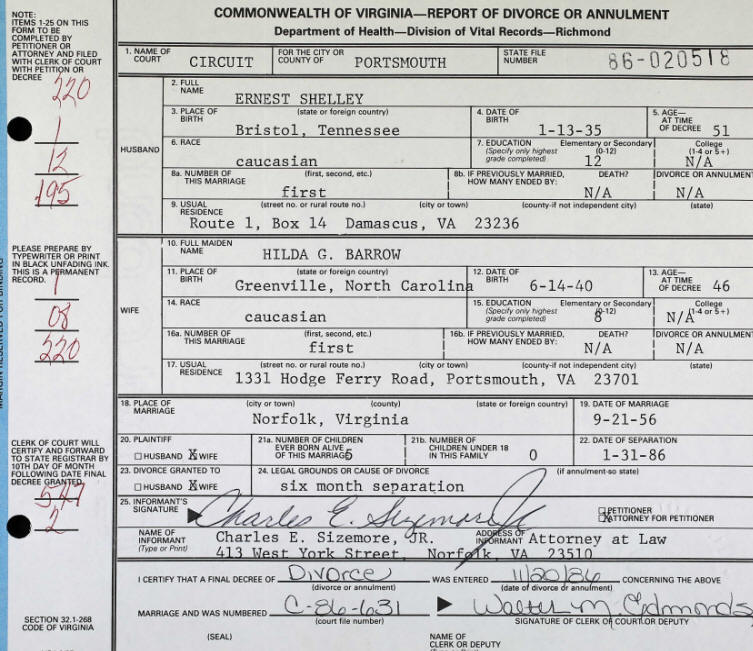 COMMONWEALTH OF VIRGINIA—REPORT OF DIVORCE OR ANNULMENT
Department of Health—Division of Vital Records—Richmond
NOTE:
ITEMS 1-25 ON THIS
FORM TO BE
COMPLETED BY
PETITIONER OR
ATTORNEY AND FILED
WITH CLERK OF COURT
WITH PETITION OR
DECREE
220
1
12
195
PLEASE PREPARE BY
TYPEWRITER OR PRINT
IN BLACK UNFADING INK.
THIS IS A PERMANENT
RECORD.
1
08
220
CLERK OF COURT WILL
CERTIFY AND FORWARD
TO STATE REGISTRAR BY
10TH DAY OF MONTH
FOLLOWING DATE FINAL
DECREE GRANTED.
547
2
SECTION 32.1-268
CODE OF VIRGINIA
1. NAME OF COURT CIRCUIT FOR THE CITY OR COUNTY OF PORTSMOUTH STATE FILE NUMBER 86-020518
HUSBAND
2. FULL NAME ERNEST SHELLEY
3. PLACE OF BIRTH (state or foreign country) Bristol, Tennessee 4. DATE OF BIRTH 1-13-35 5. AGE—AT TIME OF DECREE 51
6. RACE caucasian 7. EDUCATION (Specify only highest grade completed) Elementary or Secondary (0-12) 12 College (1-4 or 5+) N/A
8a. NUMBER OF THIS MARRIAGE (first, second, etc.) first 8b. IF PREVIOUSLY MARRIED, HOW MANY ENDED BY: DEATH? N/A DIVORCE OR ANNULMENT N/A
9. USUAL RESIDENCE (street no. or rural route no.) (city or town) (county-if not independent city) (state)
Route 1, Box 14 Damascus, VA 23236
WIFE
10. FULL MAIDEN NAME HILDA G. BARROW
11. PLACE OF BIRTH (state or foreign country) Greenville, North Carolina 12. DATE OF BIRTH 6-14-40 13. AGE—AT TIME OF DECREE 46
14. RACE caucasian 15. EDUCATION (Specify only highest grade completed) Elementary or Secondary (0-12) 8 College (1-4 or 5+) N/A
16a. NUMBER OF THIS MARRIAGE (first, second, etc.) first 16b. IF PREVIOUSLY MARRIED, HOW MANY ENDED BY: DEATH? N/A DIVORCE OR ANNULMENT N/A
17. USUAL RESIDENCE (street no. or rural route no.) (city or town) (county-if not independent city) (state)
1331 Hodge Ferry Road, Portsmouth, VA 23701
18. PLACE OF MARRIAGE (city or town) (county) (state or foreign country) Norfolk, Virginia 19. DATE OF MARRIAGE 9-21-56
20. PLAINTIFF HUSBAND X WIFE 21a. NUMBER OF CHILDREN EVER BORN ALIVE OF THIS MARRIAGE 5 21b. NUMBER OF CHILDREN UNDER 18 IN THIS FAMILY 0 22. DATE OF SEPARATION 1-31-86
23. DIVORCE GRANTED TO HUSBAND X WIFE 24. LEGAL GROUNDS OR CAUSE OF DIVORCE (if annulment-so state) six month separation
25. INFORMANT'S SIGNATURE Charles E. Sizemore Jr. PETITIONER X ATTORNEY FOR PETITIONER
NAME OF INFORMANT (Type or Print) Charles E. Sizemore, JR. ADDRESS OF INFORMANT Attorney at Law
413 West York Street, Norfolk, VA 23510
I CERTIFY THAT A FINAL DECREE OF Divorce WAS ENTERED 11/20/86 CONCERNING THE ABOVE
(divorce or annulment) (date of divorce or annulment)
MARRIAGE AND WAS NUMBERED C-86-631 Walter M. Edmonds
(court file number) SIGNATURE OF CLERK OF COURT OR DEPUTY
(SEAL) NAME OF CLERK OR DEPUTY